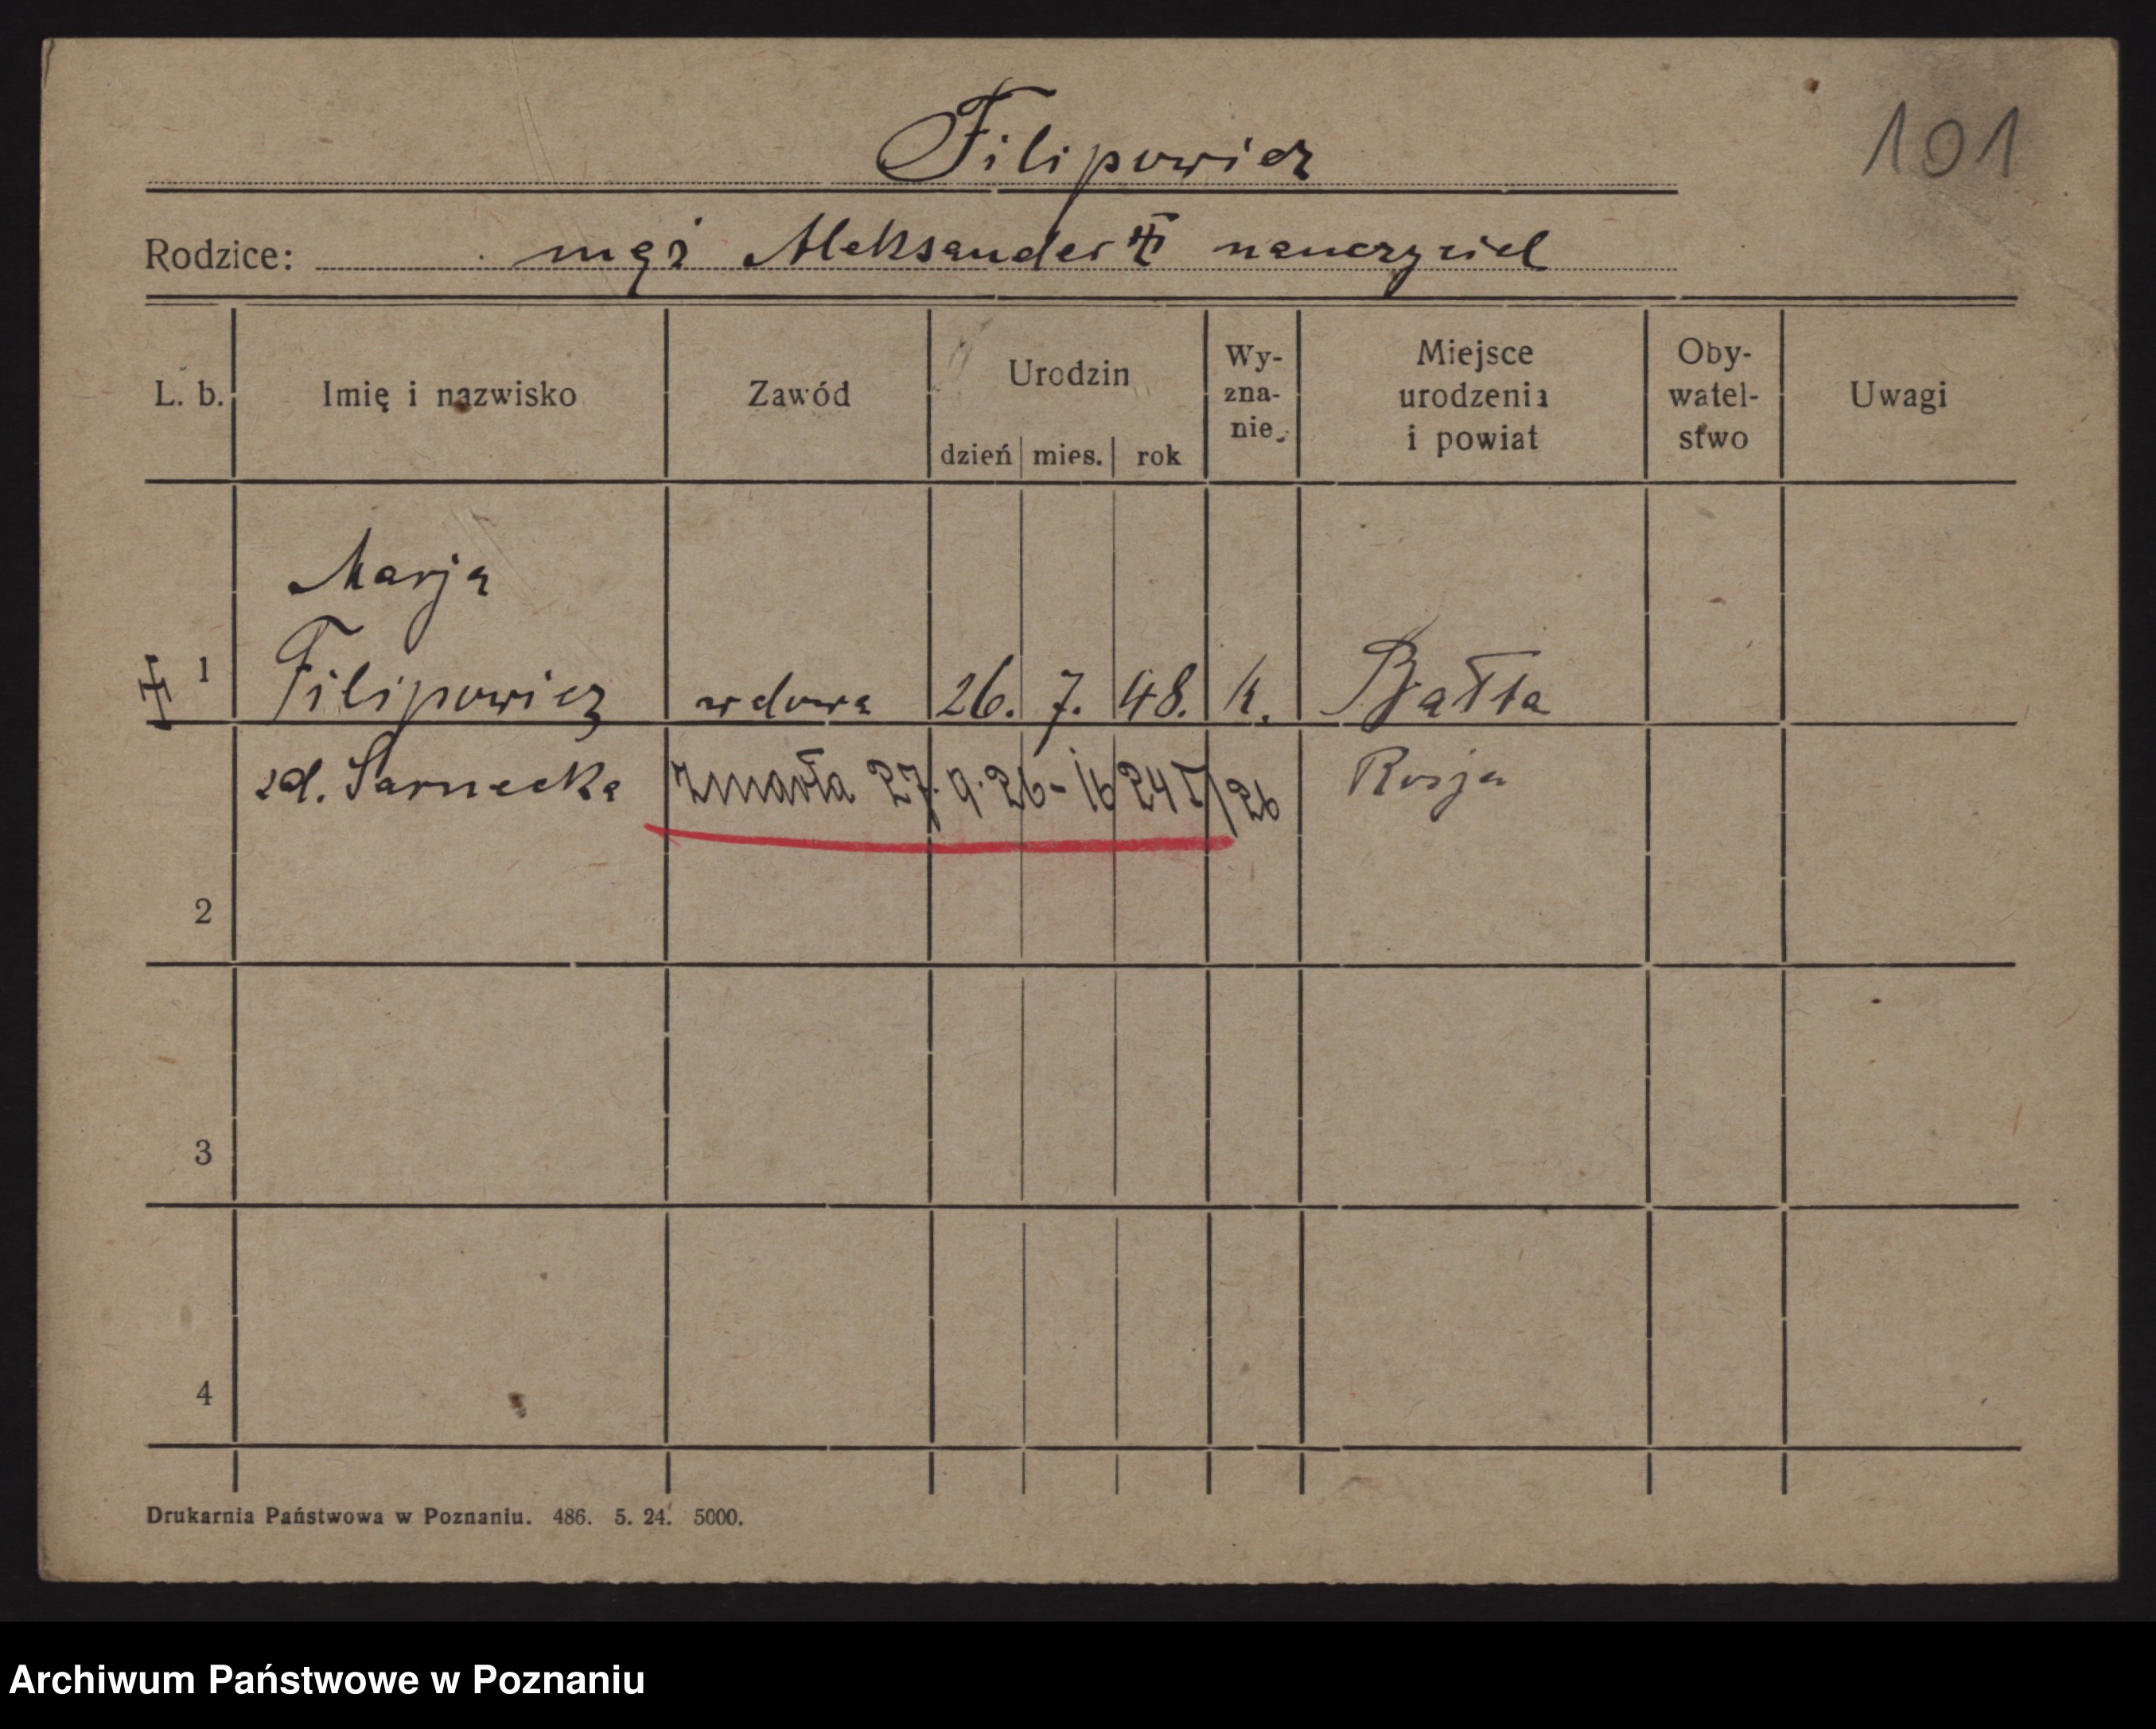 Filipowicz
101
Rodzice: mąż Aleksander ‡ nauczyciel
L. b. Imię i nazwisko Zawód Urodzin dzień mies. rok Wy-zna-nie Miejsce urodzenia i powiat Oby-watel-stwo Uwagi
Marja
‡ 1 Filipowicz wdowa 26. 7. 48. k. Bałta
zd. Sarnecka zmarła 27. 9. 26 - 16 24 I/26 Rosja
2
3
4
Drukarnia Państwowa w Poznaniu. 486. 5. 24. 5000.
Archiwum Państwowe w Poznaniu